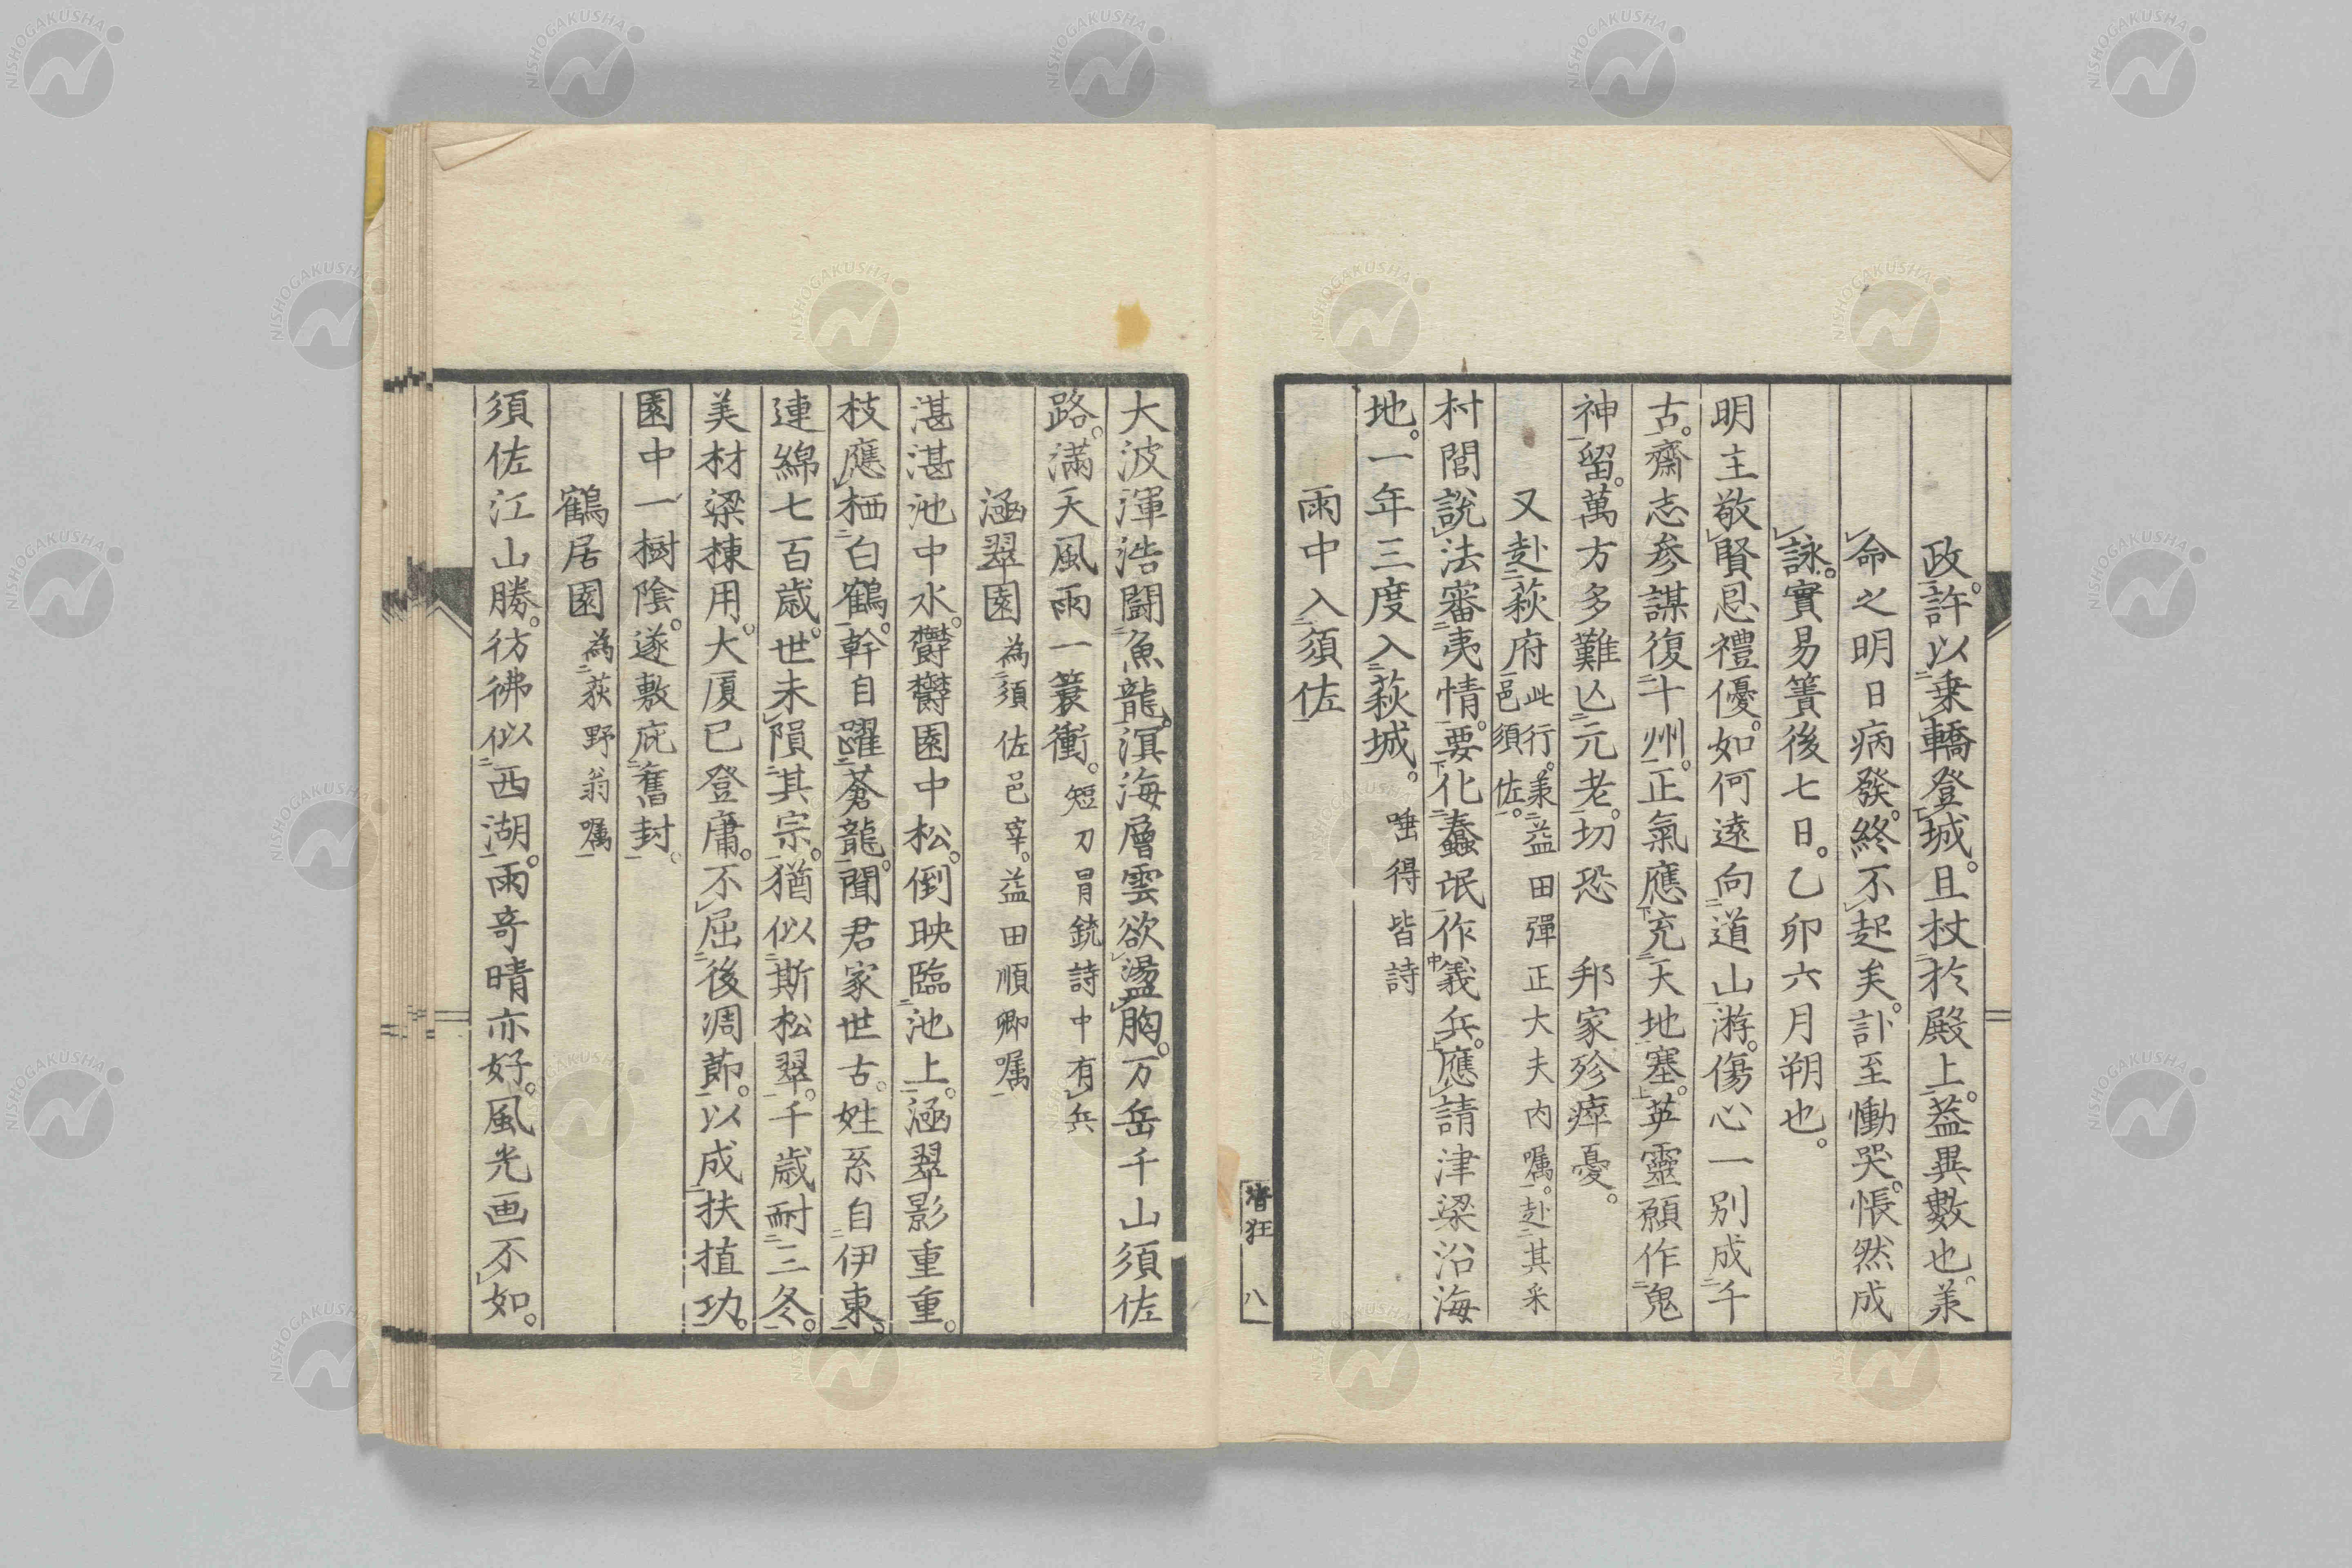 政。許以乗轎登城。且杖於殿上。葢異數也。羕
命之明日病發。終不起矣。訃至慟哭。悵然成
詠。實易簀後七日。乙卯六月朔也。
明主敬賢恩禮優。如何遠向道山游。傷心一別成千
古。齋志参謀復十州。正氣應充天地塞。英靈願作鬼
神留。萬方多難亾元老。切恐 邦家殄瘁憂。
又赴萩府此行。羕益田彈正大夫内嘱。赴其采
邑須佐。
村閭說法審夷情。要化蠢氓作義兵。應請津梁沿海
地。一年三度入萩城。唾得皆詩
雨中入須佐
渚狂 八
大波渾浩鬪魚龍。溟海層雲欲盪胸。万岳千山須佐
路。滿天風雨一簑衝。短刀冐銃詩中有兵
涵翠園為須佐邑宰。益田順卿嘱
湛湛池中水。欝欝園中松。倒映臨池上。涵翠影重重。
枝應栖白鶴。幹自躍蒼龍。聞君家世古。姓系自伊東。
連綿七百歳。世未隕其宗。猶似斯松翠。千歳耐三冬。
美材梁棟用。大厦已登庸。不屈後凋節。以成扶植功。
園中一樹陰。遂敷庇舊封。
鶴居園為荻野翁嘱
須佐江山勝。彷彿似西湖。雨奇晴亦好。風光画不如。
NISHOGAKUSHA